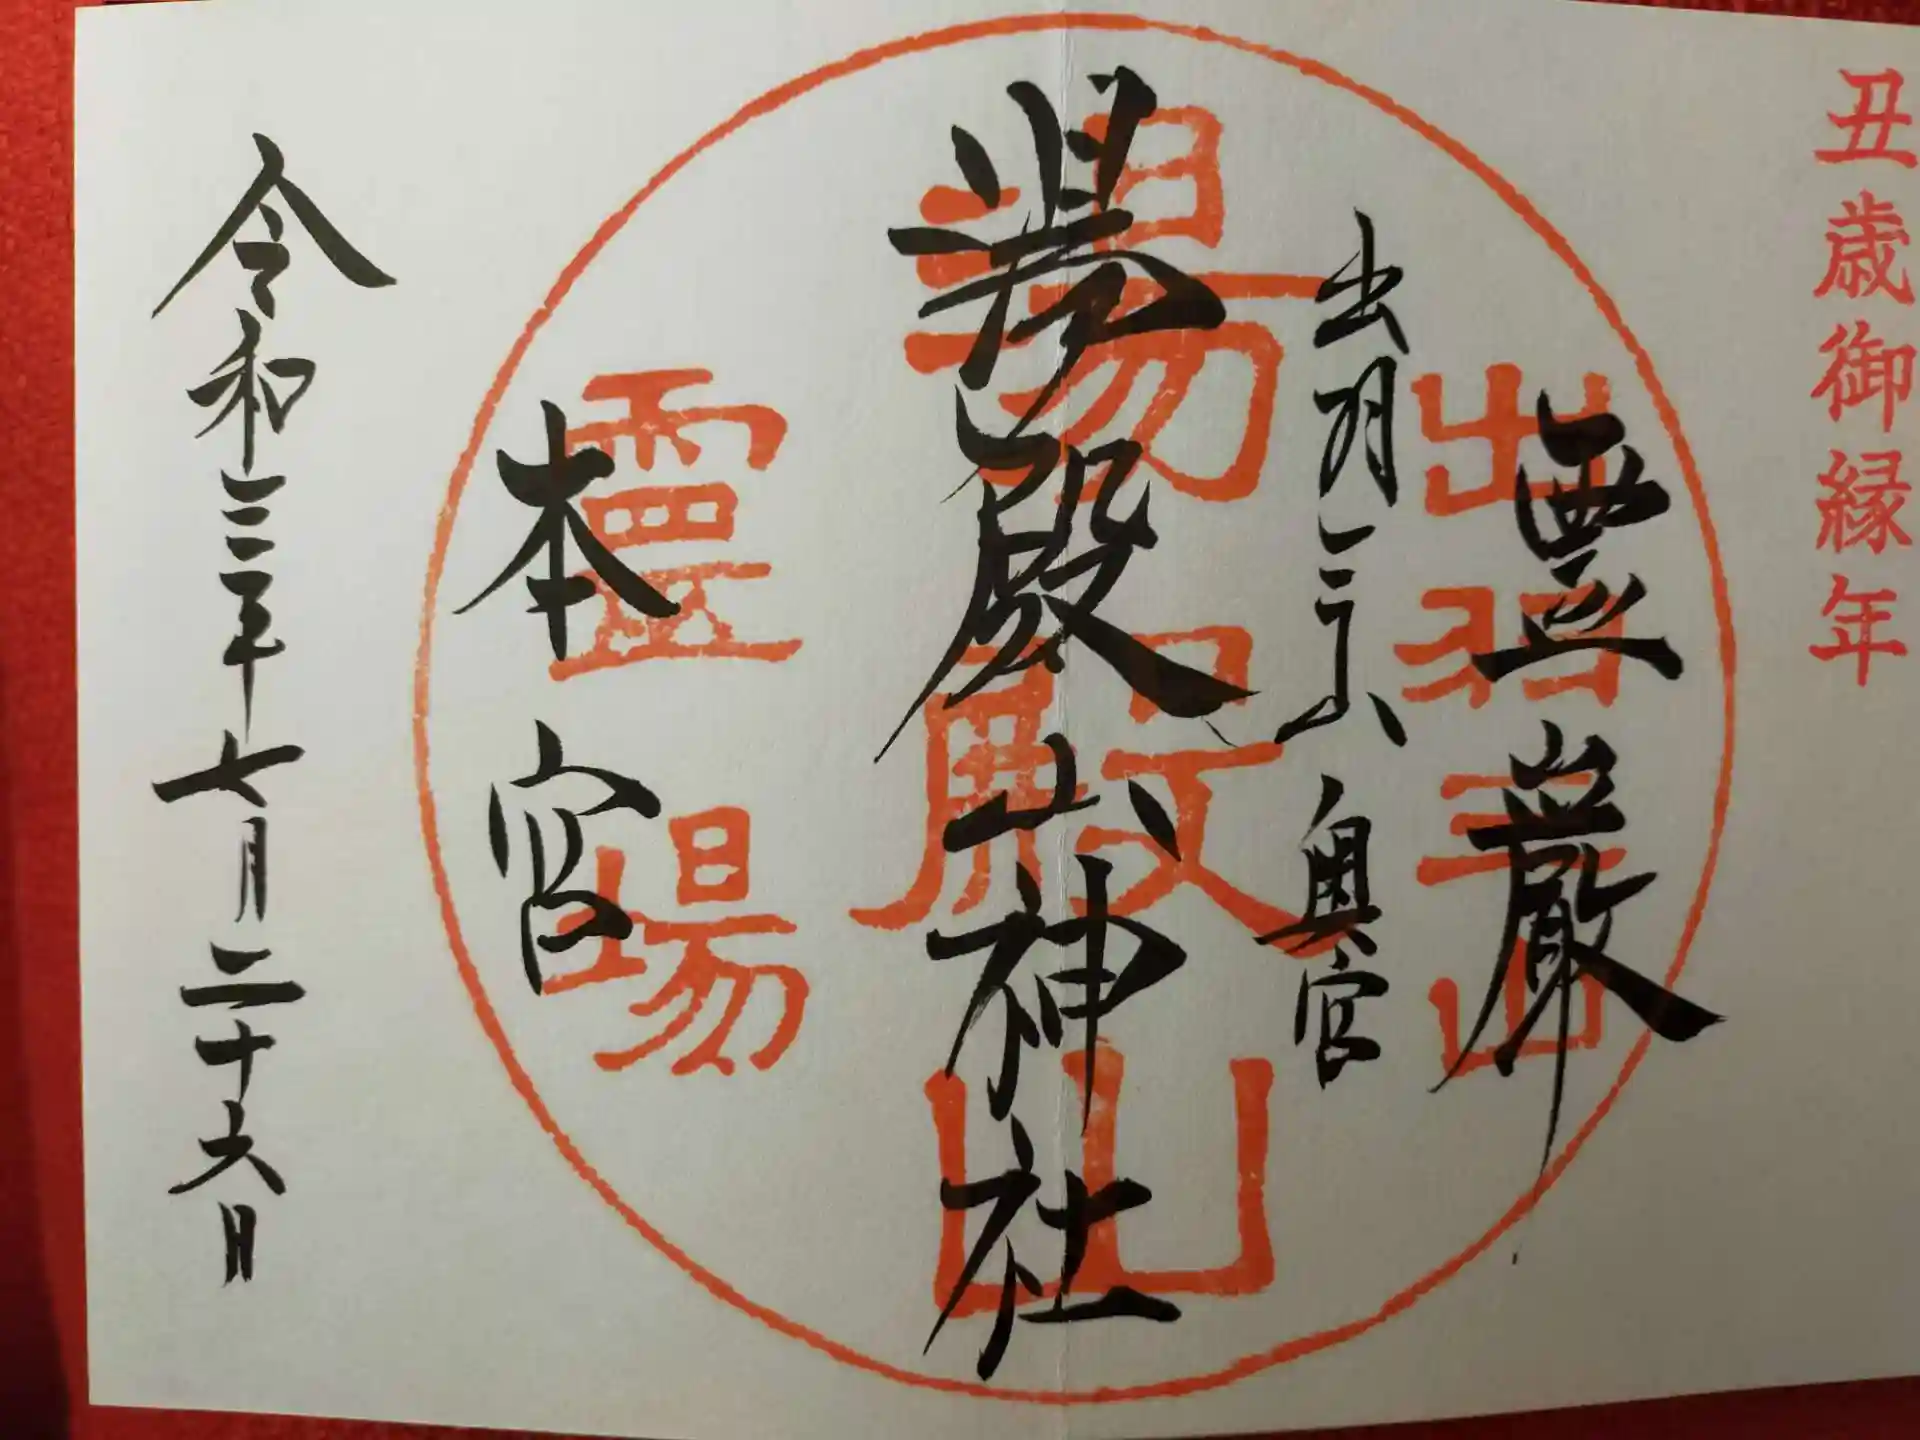 丑歳御縁年
霊巌
出羽三山
出羽三山奥宮
湯殿山神社
湯殿山
本宮
霊場
令和三年七月二十六日